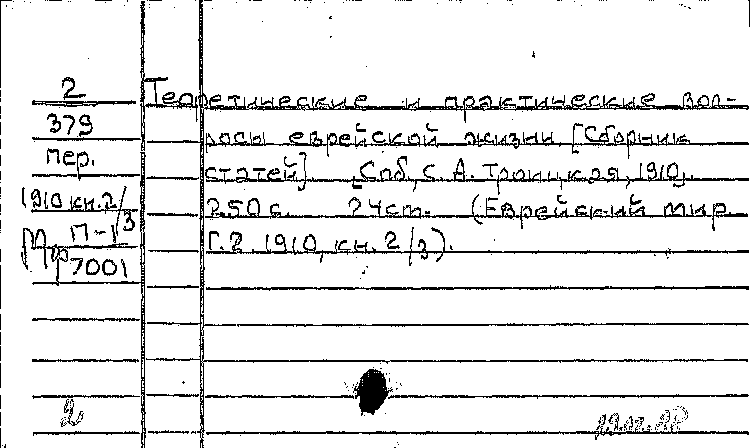 2
379
пер.
1910 кн.2/3
П-1
Мр 7001
Теоретические и практические воп-
росы еврейской жизни. [Сборник
статей]. [Спб, С. А. Троицкая, 1910].
250 с. 24 см. (Еврейский мир
Г.2. 1910, кн. 2/3).
2